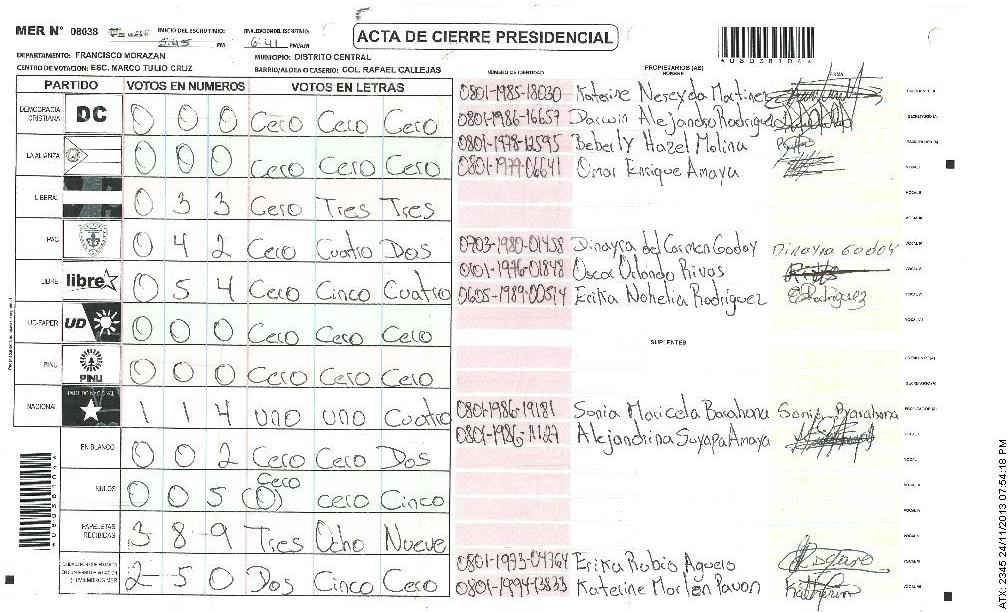 ACTA DE CIERRE PRESIDENCIAL
MER N° 08038
INICIO DEL ESCRUTINIO: 5:45 PM
FINALIZACION DEL ESCRUTINIO: 6:41 PM/AM
DEPARTAMENTO: FRANCISCO MORAZAN
MUNICIPIO: DISTRITO CENTRAL
CENTRO DE VOTACION: ESC. MARCO TULIO CRUZ
BARRIO/ALDEA O CASERIO: COL. RAFAEL CALLEJAS
PARTIDO VOTOS EN NUMEROS VOTOS EN LETRAS
DEMOCRACIA CRISTIANA DC 0 0 0 Cero Cero Cero
LA ALIANZA 0 0 0 Cero Cero Cero
LIBERAL 0 3 3 Cero Tres Tres
PAC 0 4 2 Cero Cuatro Dos
LIBRE libre 0 5 4 Cero Cinco Cuatro
UD-FAPER UD 0 0 0 Cero Cero Cero
PINU PINU 0 0 0 Cero Cero Cero
NACIONAL PARTIDO NACIONAL 1 1 4 uno uno Cuatro
EN BLANCO 0 0 2 Cero Cero Dos
NULOS 0 0 5 Cero (0) cero Cinco
PAPELETAS RECIBIDAS 3 8 9 Tres Ocho Nueve
2 5 0 Dos Cinco Cero
NUMERO DE IDENTIDAD PROPIETARIOS (AS) NOMBRE FIRMA
0801-1985-18030 Katerine Nereyda Martinez
0801-1986-16657 Darwin Alejandro Rodriguez SECRETARIO (A)
0801-1978-12595 Beberly Hazel Molina
0801-1979-06641 Omar Enrique Amaya
0703-1980-01458 Dinayra del Carmen Godoy Dinayra Godoy
0101-1976-01848 Oscar Orlando Rivas
0605-1989-00514 Erika Nohelia Rodriguez E Rodriguez
SUPLENTES
0801-1986-19181 Sonia Maricela Barahona Sonia Barahona
0801-1986-11127 Alejandrina Suyapa Amaya
0801-1973-04764 Erika Rubio Aguero
0801-1994-13833 Katherine Marlen Pavon Katherin
ATX: 2345 24/11/2013 07:54:18 PM